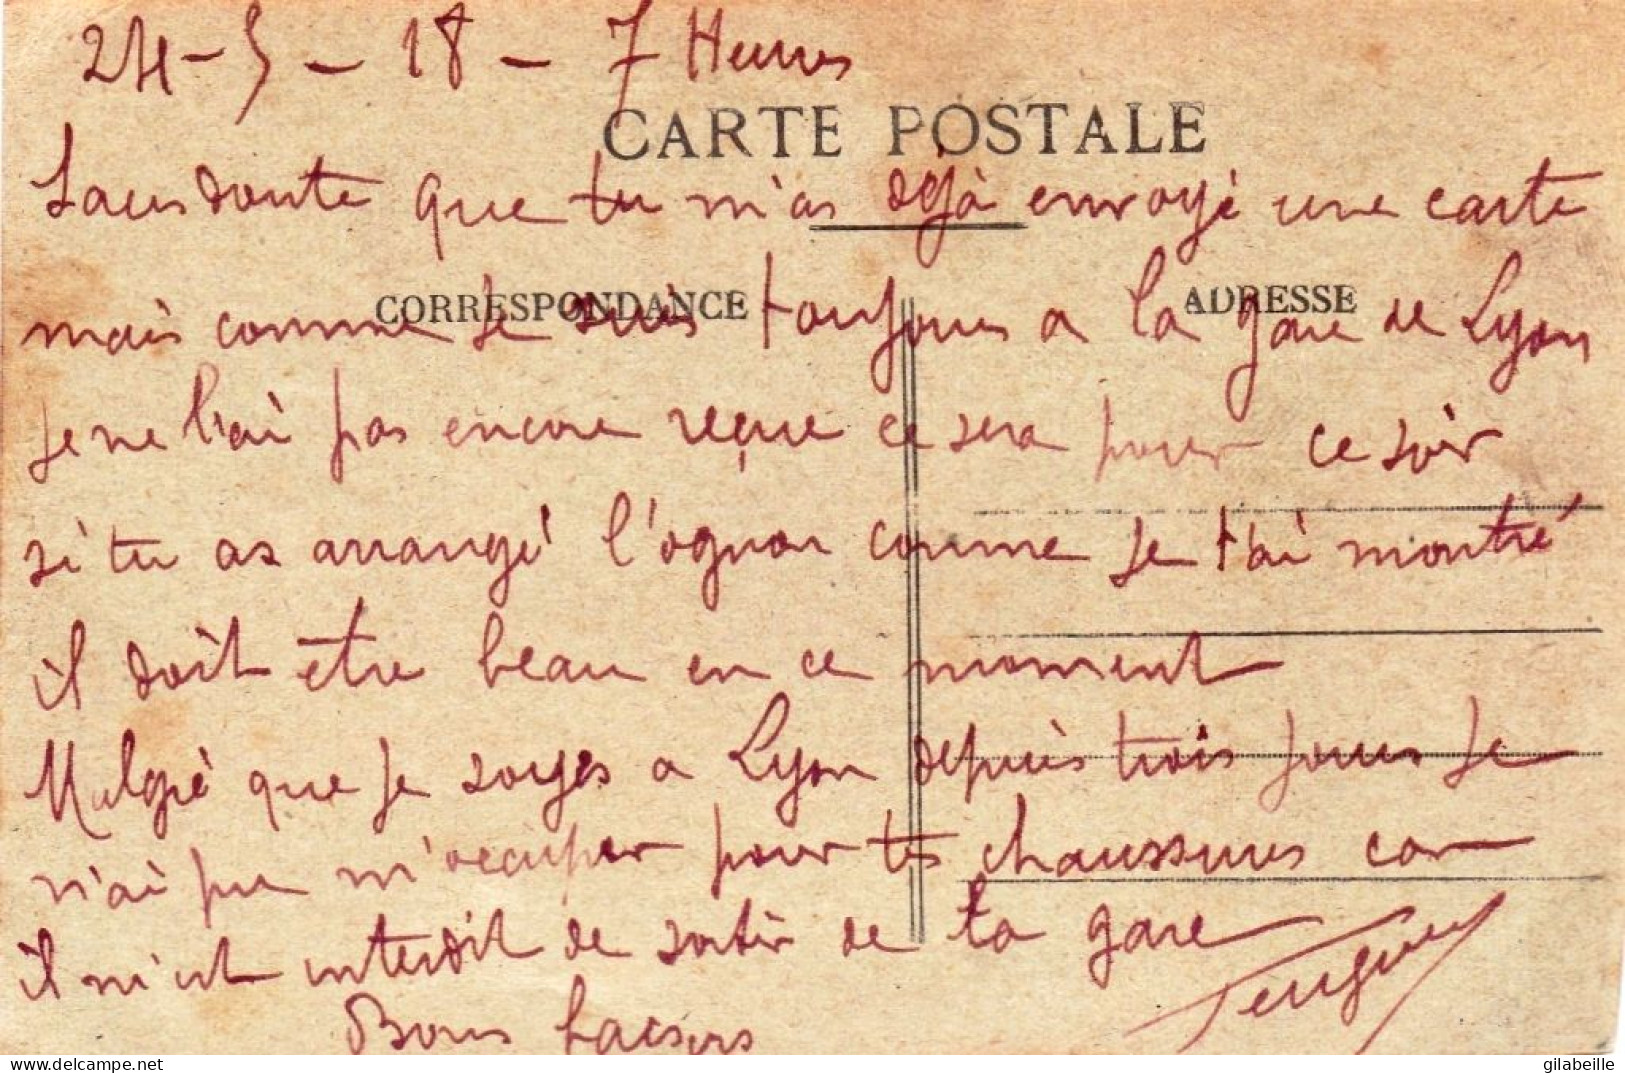 24-5-18-7 Heures
CARTE POSTALE
Sans doute que tu m'as déjà envoyé une carte
CORRESPONDANCE
ADRESSE
mais comme je suis toujours a la gare de Lyon
je ne l'ai pas encore reçue ce sera pour ce soir
si tu as arrangé l'ognon comme je t'ai montré
il doit etre beau en ce moment
Malgré que je soyes a Lyon depuis trois jours je
n'ai pu m'occuper pour tes chaussures car
il m'est interdit de sortir de la gare
Bons baisers
gilabeille
delcampe.net